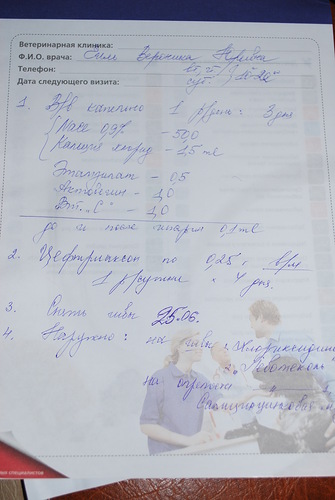 Ветеринарная клиника:
Ф.И.О. врача: Вероника
Телефон:
Дата следующего визита:
1. В/в капельно 1 р/день 3 дня
NaCl 0,9% - 50,0
Кальция хлорид - 1,5 ml
Этамзилат - 0,5
Актовегин - 1,0
Вит. "С" - 1,0
до и после гепарин 0,1 ml
2. Цефтриаксон по 0,25, в/м
1 р/сутки × 4 дня.
3. Снять швы 25.06.
4. Наружно: на швы 1. Хлоргексидин
2.
на